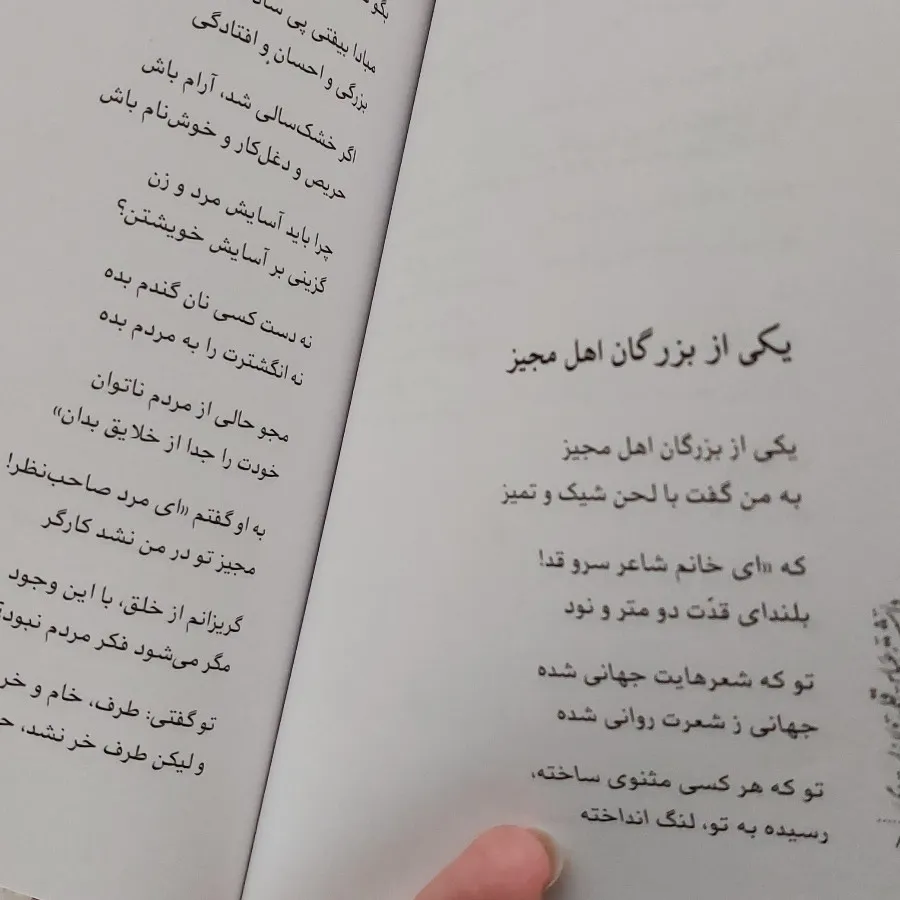 یکی از بزرگان اهل مجیز
یکی از بزرگان اهل مجیز
به من گفت با لحن شیک و تمیز
که «ای خانم شاعر سرو قد!
بلندای قدّت دو متر و نود
تو که شعرهایت جهانی شده
جهانی ز شعرت روانی شده
تو که هر کسی مثنوی ساخته،
رسیده به تو، لنگ انداخته
مبادا بیفتی پی
بزرگی و احسان و افتادگی
اگر خشک‌سالی شد، آرام باش
حریص و دغل‌کار و خوش‌نام باش
چرا باید آسایش مرد و زن
گزینی بر آسایش خویشتن؟
نه دست کسی نان گندم بده
نه انگشترت را به مردم بده
مجو حالی از مردم ناتوان
خودت را جدا از خلایق بدان»
به او گفتم «ای مرد صاحب‌نظر!
مجیز تو در من نشد کارگر
گریزانم از خلق، با این وجود
مگر می‌شود فکر مردم نبود؟
تو گفتی: طرف، خام و خر
ولیکن طرف خر نشد،